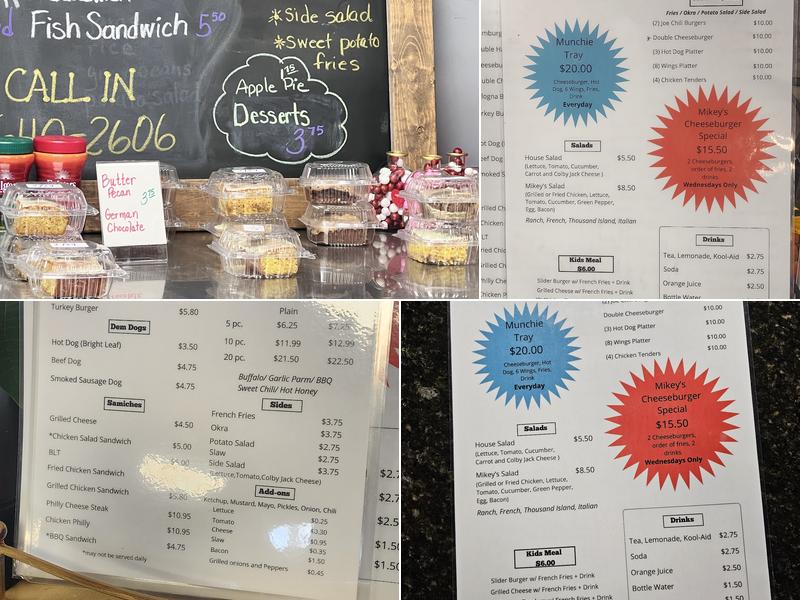 Fish Sandwich 5.50
CALL IN
40-2606
*Side salad
*Sweet potato
fries
1.75
Apple Pie
Desserts
3.75
Butter
Pecan
3.75
German
Chocolate
Fries / Okra / Potato Salad / Side Salad
(2) Joe Chili Burgers $10.00
Double Cheeseburger $10.00
(3) Hot Dog Platter $10.00
(8) Wings Platter $10.00
(4) Chicken Tenders $10.00
Munchie
Tray
$20.00
Cheeseburger, Hot
Dog, 6 Wings, Fries,
Drink
Everyday
Mikey's
Cheeseburger
Special
$15.50
2 Cheeseburgers,
order of fries, 2
drinks
Wednesdays Only
Salads
House Salad $5.50
(Lettuce, Tomato, Cucumber,
Carrot and Colby Jack Cheese )
Mikey's Salad $8.50
(Grilled or Fried Chicken, Lettuce,
Tomato, Cucumber, Green Pepper,
Egg, Bacon)
Ranch, French, Thousand Island, Italian
Kids Meal
$6.00
Slider Burger w/ French Fries + Drink
Grilled Cheese w/ French Fries + Drink
Drinks
Tea, Lemonade, Kool-Aid $2.75
Soda $2.75
Orange Juice $2.50
Bottle Water
Turkey Burger $5.80
Dem Dogs
Hot Dog (Bright Leaf) $3.50
Beef Dog $4.75
Smoked Sausage Dog $4.75
Samiches
Grilled Cheese $4.50
*Chicken Salad Sandwich $5.00
BLT $5.00
Fried Chicken Sandwich
Grilled Chicken Sandwich $5.80
Philly Cheese Steak $10.95
Chicken Philly $10.95
*BBQ Sandwich $4.75
*may not be served daily
Plain
5 pc. $6.25 $7.25
10 pc. $11.99 $12.99
20 pc. $21.50 $22.50
Buffalo/ Garlic Parm/ BBQ
Sweet Chili/ Hot Honey
Sides
French Fries $3.75
Okra $3.75
Potato Salad $2.75
Slaw $2.75
Side Salad $3.75
(Lettuce,Tomato,Colby Jack Cheese)
Add-ons
Ketchup, Mustard, Mayo, Pickles, Onion, Chili
Lettuce
Tomato $0.25
Cheese $0.30
Slaw $0.95
Bacon $0.35
Grilled onions and Peppers $1.50
$0.45
Double Cheeseburger $10.00
(3) Hot Dog Platter $10.00
(8) Wings Platter $10.00
(4) Chicken Tenders $10.00
Munchie
Tray
$20.00
Cheeseburger, Hot
Dog, 6 Wings, Fries,
Drink
Everyday
Mikey's
Cheeseburger
Special
$15.50
2 Cheeseburgers,
order of fries, 2
drinks
Wednesdays Only
Salads
House Salad $5.50
(Lettuce, Tomato, Cucumber,
Carrot and Colby Jack Cheese )
Mikey's Salad $8.50
(Grilled or Fried Chicken, Lettuce,
Tomato, Cucumber, Green Pepper,
Egg, Bacon)
Ranch, French, Thousand Island, Italian
Kids Meal
$6.00
Slider Burger w/ French Fries + Drink
Grilled Cheese w/ French Fries + Drink
Drinks
Tea, Lemonade, Kool-Aid $2.75
Soda $2.75
Orange Juice $2.50
Bottle Water $1.50
$1.50